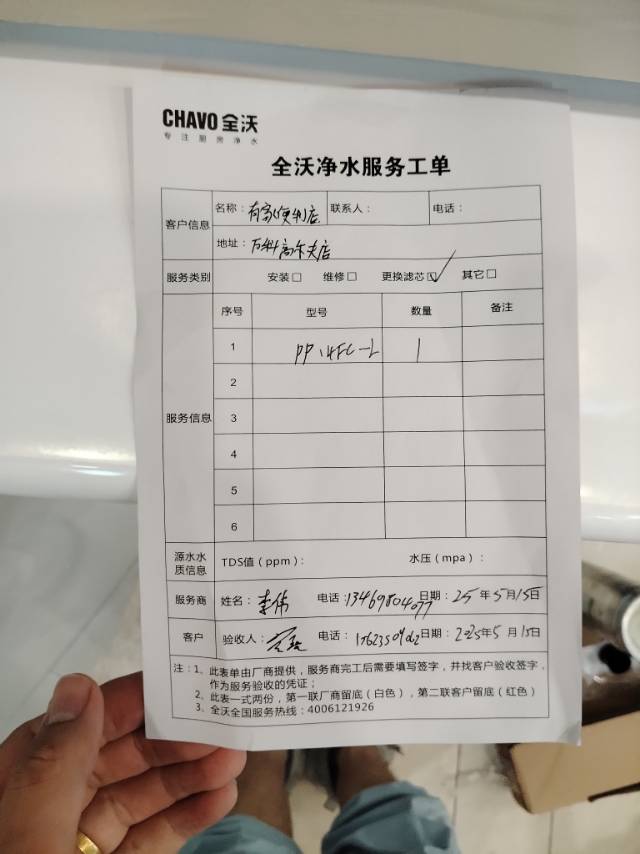 CHAVO全沃
专注厨房净水
全沃净水服务工单
客户信息 名称：有家便利店 联系人： 电话：
地址：万科高尔夫店
服务类别 安装□ 维修□ 更换滤芯☑ 其它□
服务信息 序号 型号 数量 备注
1 1
2
3
4
5
6
源水水质信息 TDS值（ppm）： 水压（mpa）：
服务商 姓名：李伟 电话：13469804077 日期：25年5月15日
客户 验收人： 电话： 日期：2025年5月15日
注：1、此表单由厂商提供，服务商完工后需要填写签字，并找客户验收签字，
作为服务验收的凭证；
2、此表一式两份，第一联厂商留底（白色），第二联客户留底（红色）
3、全沃全国服务热线：4006121926